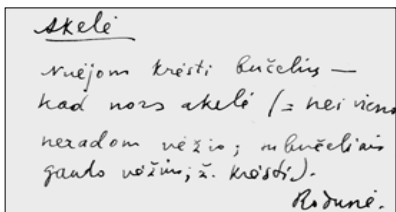 Akelė
Nuėjom krėsti bučelius —
kad nors akelė (= nei vieno
neradom vėžio; su bučeliais
gaudo vėžius; ž. krėsti).
Rodunė.